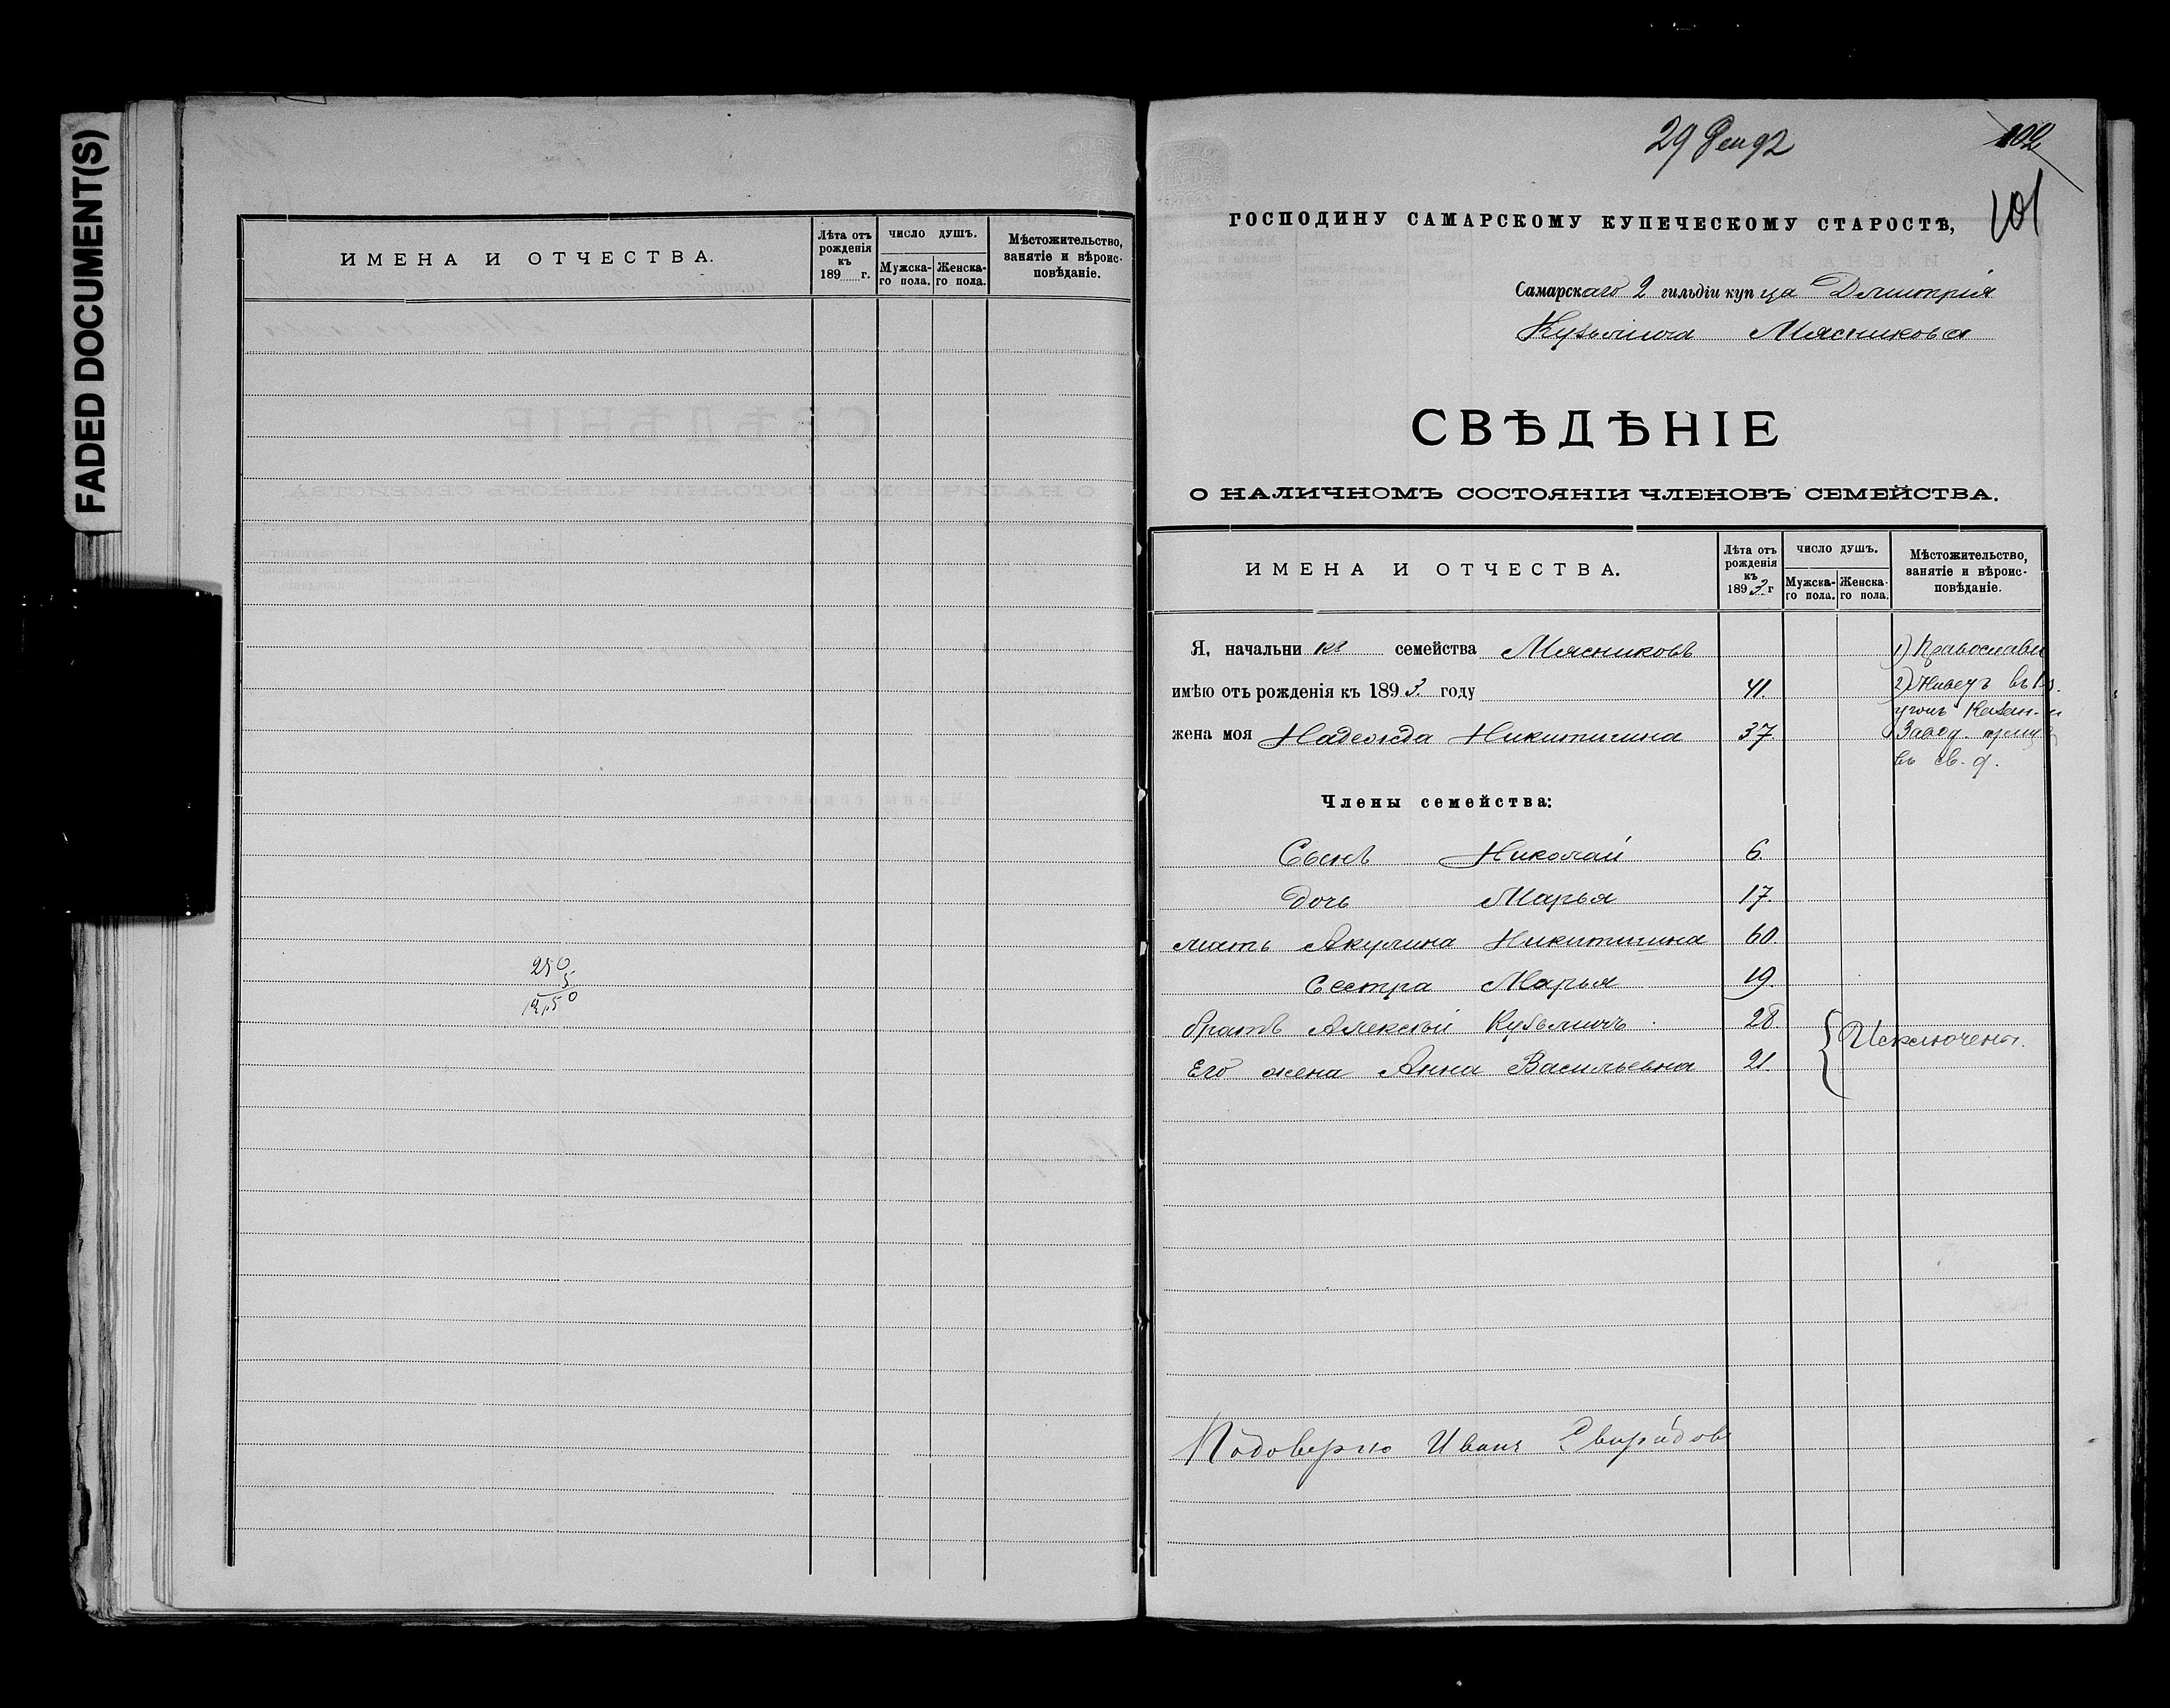 FADED DOCUMENT(S)
ИМЕНА И ОТЧЕСТВА.
Лѣта отъ рожденія къ 189 г.
ЧИСЛО ДУШЪ.
Мужска-го пола.
Женска-го пола.
Мѣстожительство, занятіе и вѣроис-повѣданіе.
250
5
1250
102
101
ГОСПОДИНУ САМАРСКОМУ КУПЕЧЕСКОМУ СТАРОСТѢ,
Самарскаго 2 гильдіи купца Дмитрія
Кузьмича Мясникова
СВѢДѢНІЕ
О НАЛИЧНОМЪ СОСТОЯНІИ ЧЛЕНОВЪ СЕМЕЙСТВА.
ИМЕНА И ОТЧЕСТВА.
Лѣта отъ рожденія къ 1893 г
ЧИСЛО ДУШЪ.
Мужска-го пола.
Женска-го пола.
Мѣстожительство, занятіе и вѣроис-повѣданіе.
Я, начальникъ семейства Мясниковъ 1) Православн
имѣю отъ рожденія къ 1893 году 41. 2) Живетъ въ
жена моя Надежда Никитична 37.
въ св. д.
Члены семейства:
Сынъ Николай 6.
Дочь Марья 17.
мать Акулина Никитична 60
Сестра Марья 19.
братъ Алексѣй Кузьмичъ 28 Исключены.
Его жена Анна Васильевна 21.
Иванъ Свиридов